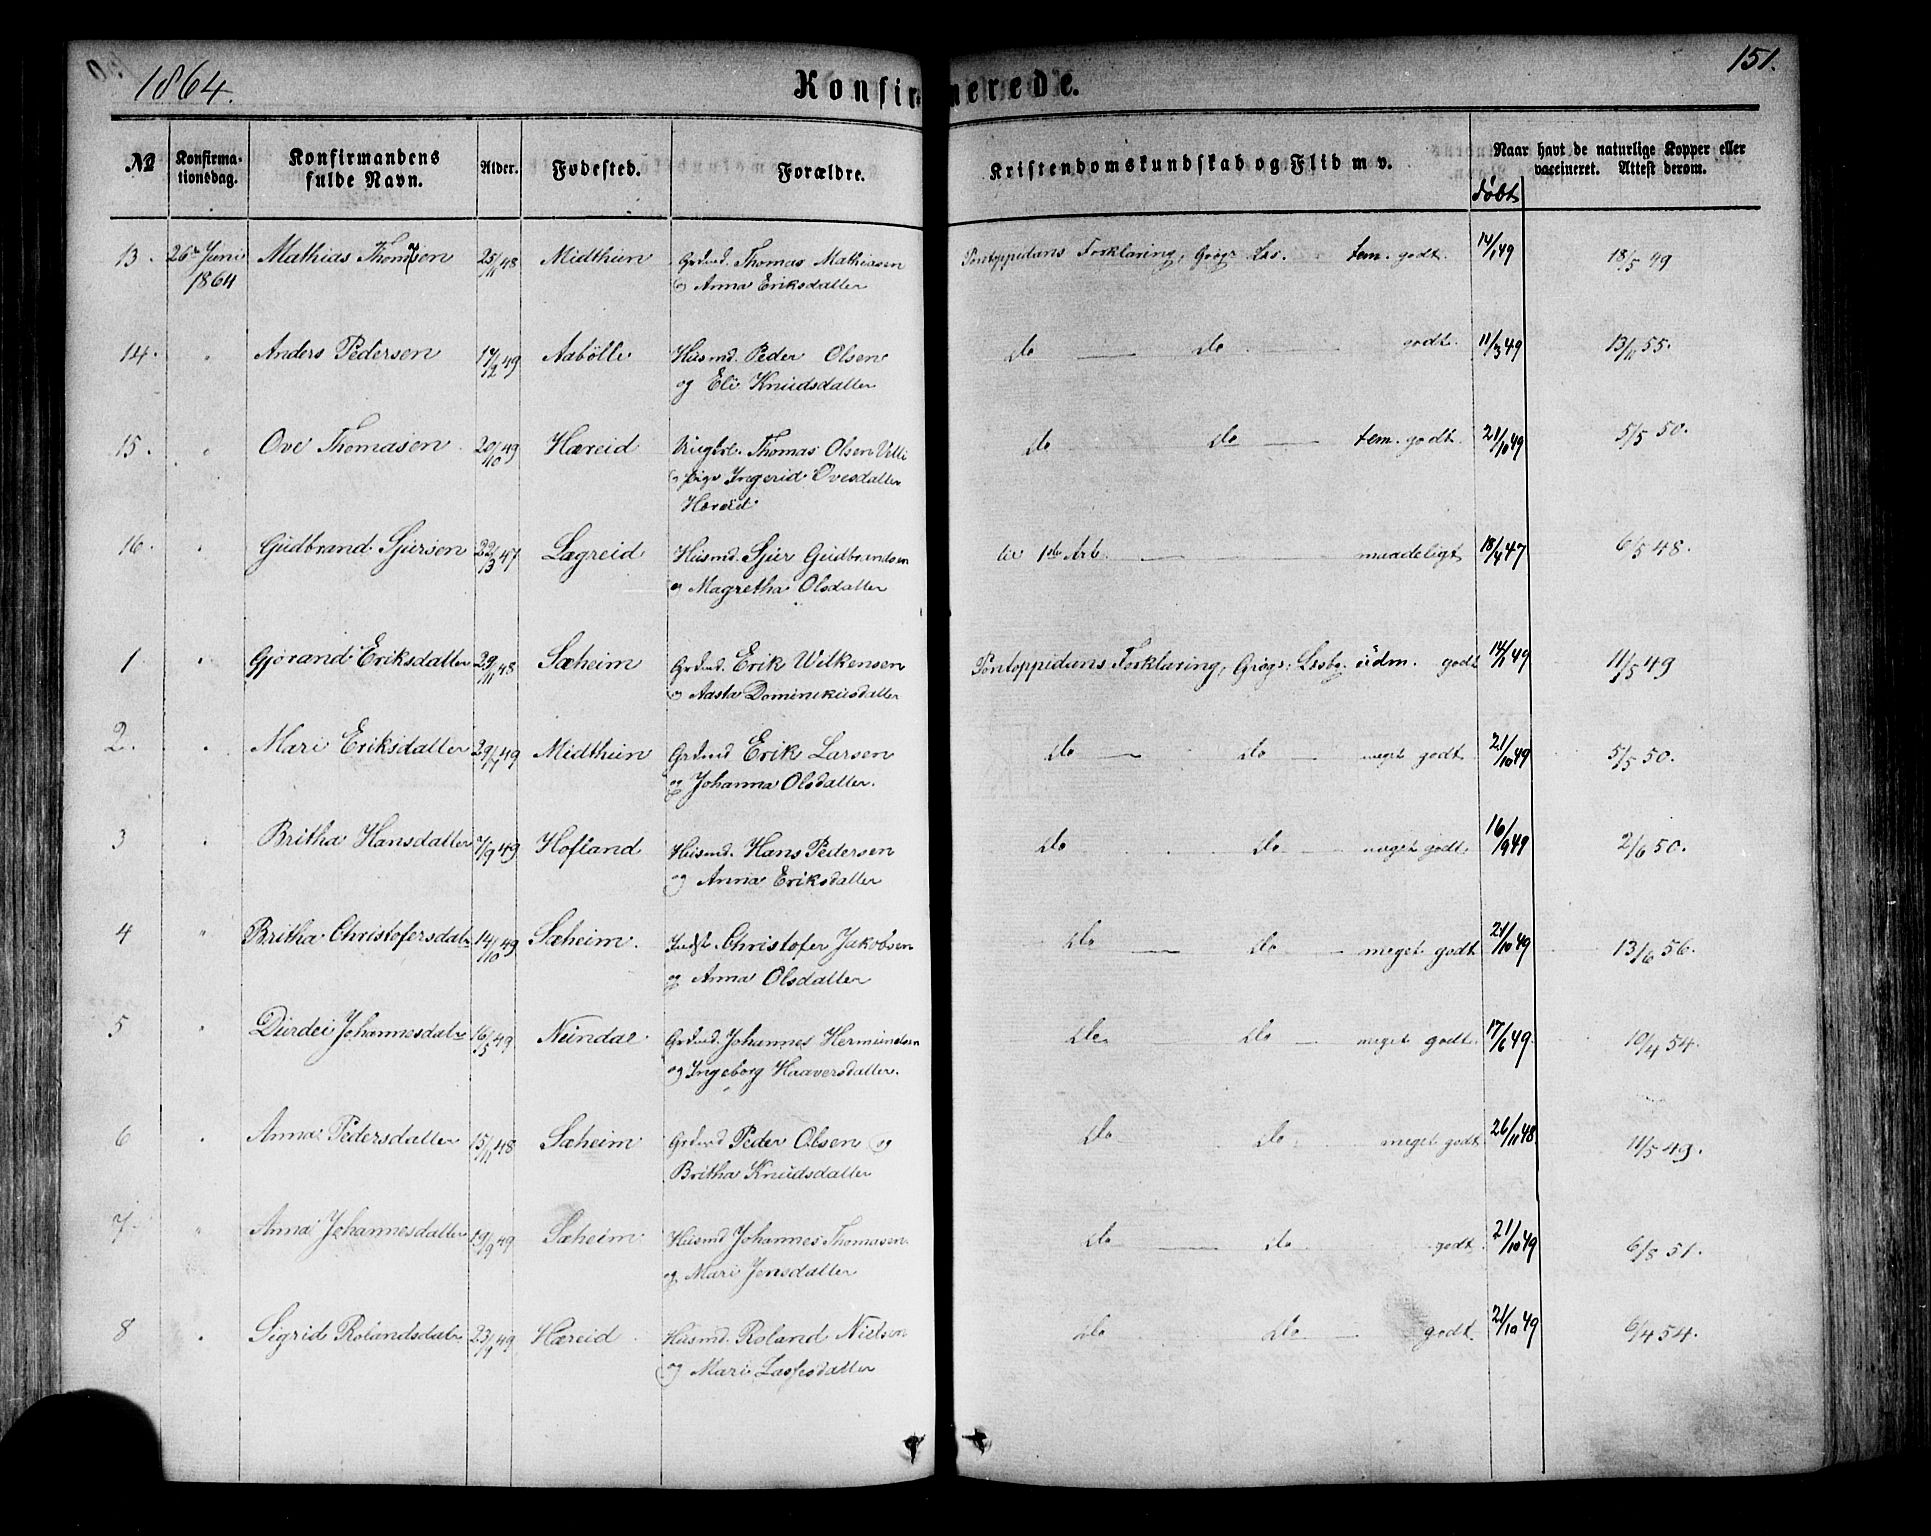 1864.
Konfirmerede.
151.
No
Konfirma-
tionsdag.
Konfirmandens
fulde Navn.
Alder.
Fødested.
Forældre.
Kristendomskundskab og Flid m v.
døbt
Naar havt de naturlige Kopper eller
vaccineret. Attest derom.
13. 26de Juni Mathias Thomesen 25/11 48 Midthun Grdmd. Thomas Mathiasen Pontoppidans Forklaring, Grøgs Læs. tem. godt. 14/1 49 18/5 49
1864 og Anna Eriksdatter
14. " Anders Pedersen 17/2 49 Aabölle Husmd. Peder Olsen do — do — godt. 11/3 49 13/11 55.
og Eli Knudsdatter
15. " Ove Thomasen 20/10 49 Hæreid Thomas Olsen Velli do do — tem. godt. 21/10 49 5/5 50.
og Pige Ingerid Ovesdatter
Hæreid
16. " Gudbrand Sjursen 22/3 47 Lægreid Husmd. Sjur Gudbrandsen til 1ste Art. — maadeligt 18/4 47 6/5 48.
og Magretha Olsdatter
1 " Gjørand Eriksdatter 29/11 48 Sæheim Grdmd. Erik Wilkensen Pontoppidans Forklaring, Grøgs: Læsbg. udm. godt 14/1 49 11/5 49
og Aasta Dominikusdatter
2. " Mari Eriksdatter 29/7 49 Midthun Grdmd Erik Larsen do — do — meget godt 21/10 49 5/5 50.
og Johanna Olsdatter.
3 " Britha Hansdatter 7/9 49 Hofland Husmd. Hans Pedersen do do — meget godt. 16/9 49 2/6 50.
og Anna Eriksdatter
4 " Britha Christofersdatr 14/10 49 Sæheim. Indst. Christofer Jakobsen do — do — meget godt 21/10 49 13/6 56.
og Anna Olsdatter
5 " Durdei Johannesdatr 16/5 49 Nundal Grdmd. Johannes Hermundsen do do — meget godt. 17/6 49. 10/4 54.
og Ingeborg Haaversdatter.
6 " Anna Pedersdatter 15/11 48 Sæheim Grdmd Peder Olsen og do do meget godt 26/11 48. 11/5 49.
Britha Knudsdatter
7. " Anna Johannesdatter 19/9 49 Sæheim Husmd Johannes Thomasen do — do godt 21/10 49 6/8 51.
og Mari Jensdatter
8 " Sigrid Rolandsdatr 23/9 49 Hæreid Husmd. Roland Nielsen do do — godt 21/10 49 6/4 54.
og Mari Lassesdatter